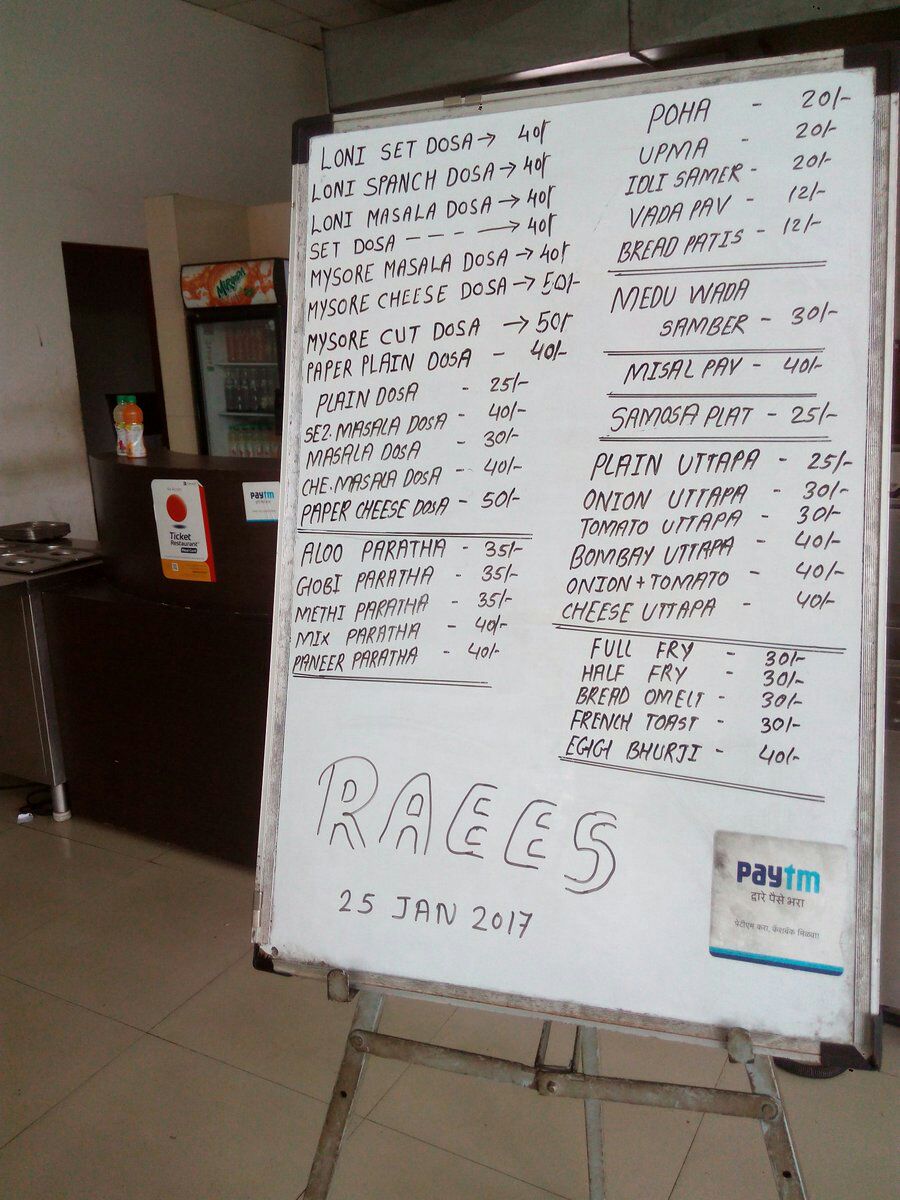 LONI SET DOSA → 40/-
LONI SPANCH DOSA → 40/-
LONI MASALA DOSA → 40/-
SET DOSA - - - → 40/-
MYSORE MASALA DOSA → 40/-
MYSORE CHEESE DOSA → 50/-
MYSORE CUT DOSA → 50/-
PAPER PLAIN DOSA - 40/-
PLAIN DOSA - 25/-
SEZ. MASALA DOSA - 40/-
MASALA DOSA - 30/-
CHE. MASALA DOSA - 40/-
PAPER CHEESE DOSA - 50/-
ALOO PARATHA - 35/-
GOBI PARATHA - 35/-
METHI PARATHA - 35/-
MIX PARATHA - 40/-
PANEER PARATHA - 40/-
POHA - 20/-
UPMA - 20/-
IDLI SAMER - 20/-
VADA PAV - 12/-
BREAD PATIS - 12/-
MEDU WADA
SAMBER - 30/-
MISAL PAV - 40/-
SAMOSA PLAT - 25/-
PLAIN UTTAPA - 25/-
ONION UTTAPA - 30/-
TOMATO UTTAPA - 30/-
BOMBAY UTTAPA - 40/-
ONION + TOMATO - 40/-
CHEESE UTTAPA - 40/-
FULL FRY - 30/-
HALF FRY - 30/-
BREAD OMELT - 30/-
FRENCH TOAST - 30/-
EGG BHURJI - 40/-
RAEES
25 JAN 2017
paytm
द्वारे पैसे भरा
पेटीएम करा, कॅशबॅक मिळवा!
Mirinda
Ticket
Restaurant
Meal Card
paytm